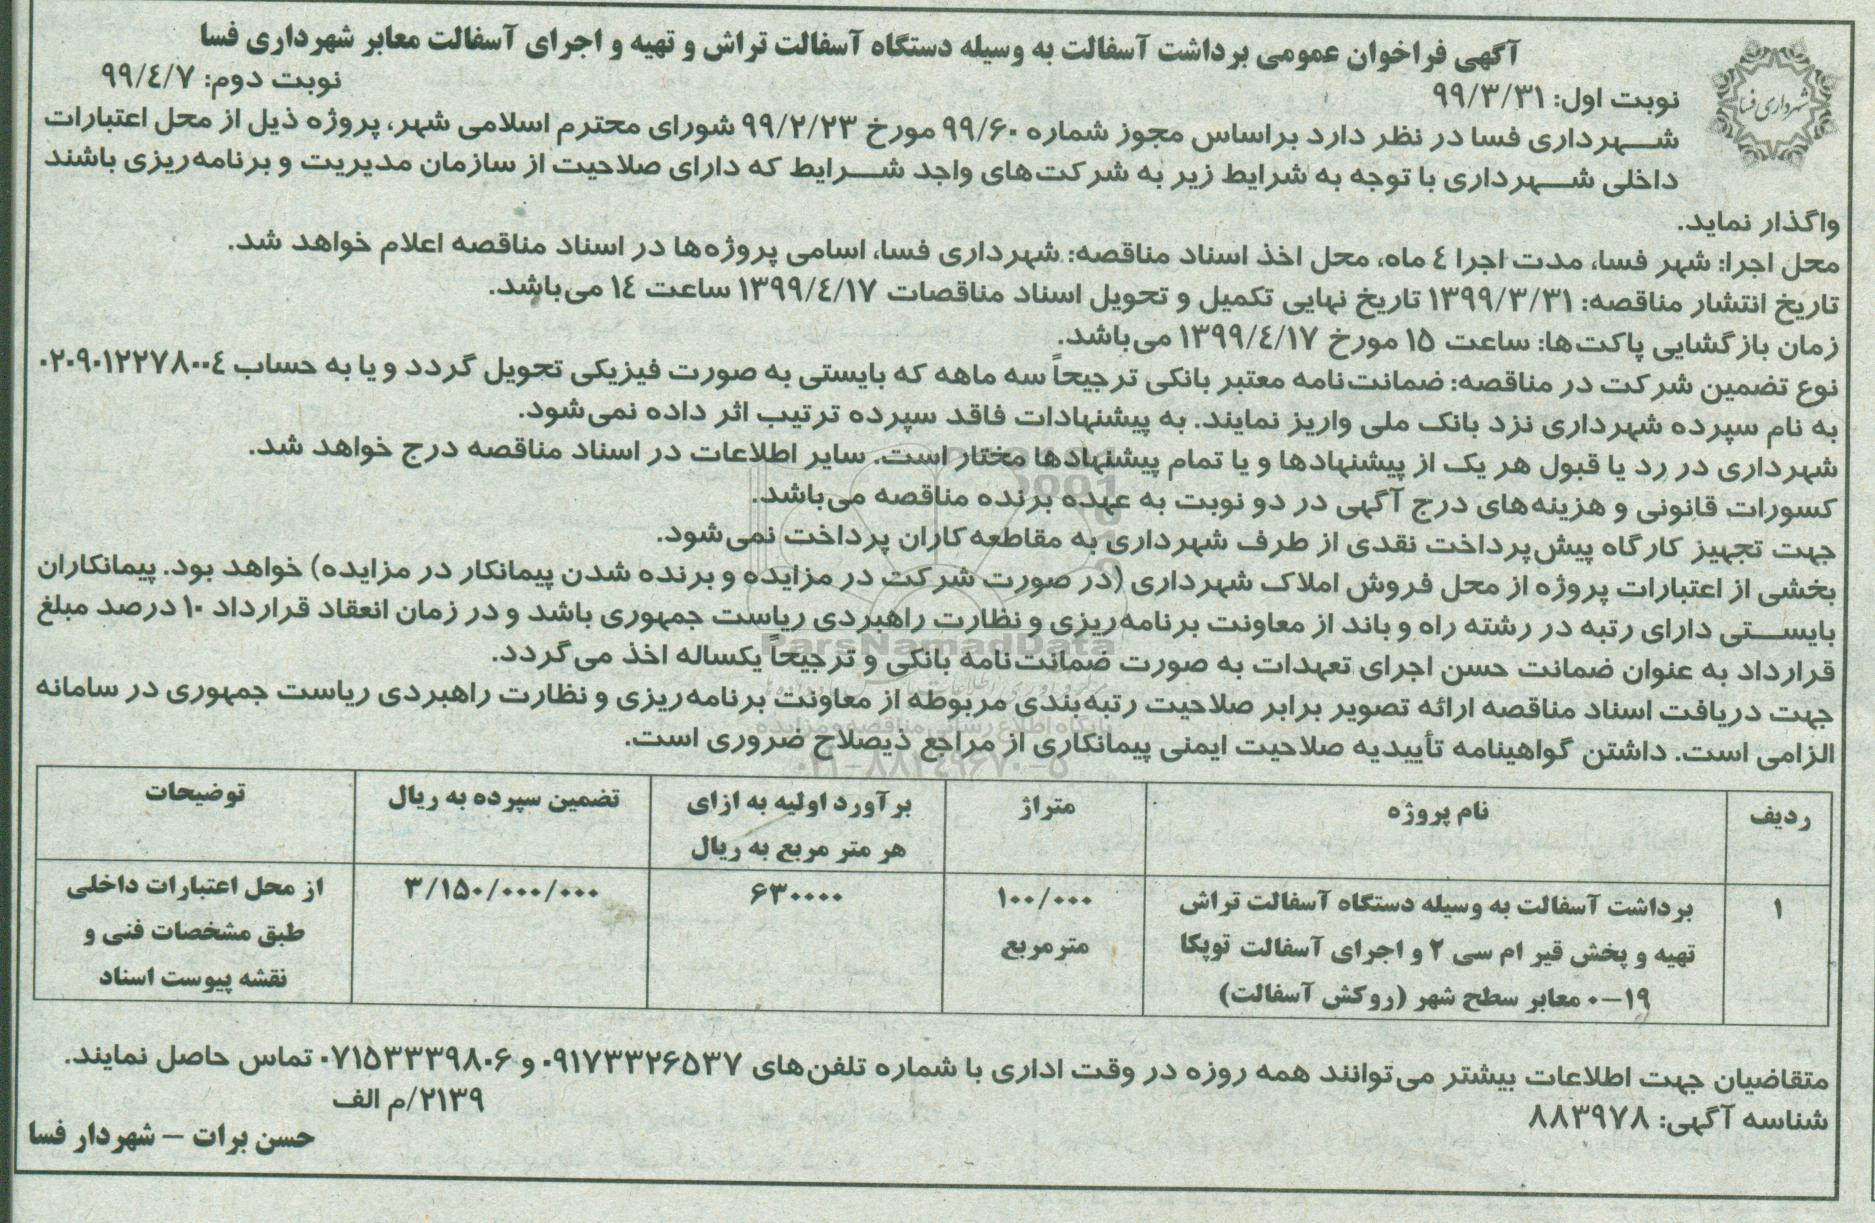 آگهی فراخوان عمومی برداشت آسفالت به وسیله دستگاه آسفالت تراش و تهیه و اجرای آسفالت معابر شهرداری فسا
شهرداری فسا
نوبت اول: ۹۹/۳/۳۱ نوبت دوم: ۹۹/٤/۷
شهرداری فسا در نظر دارد براساس مجوز شماره ۹۹/۶۰ مورخ ۹۹/۲/۲۳ شورای محترم اسلامی شهر، پروژه ذیل از محل اعتبارات
داخلی شهرداری با توجه به شرایط زیر به شرکت‌های واجد شرایط که دارای صلاحیت از سازمان مدیریت و برنامه‌ریزی باشند
واگذار نماید.
محل اجرا: شهر فسا، مدت اجرا ٤ ماه، محل اخذ اسناد مناقصه: شهرداری فسا، اسامی پروژه‌ها در اسناد مناقصه اعلام خواهد شد.
تاریخ انتشار مناقصه: ۱۳۹۹/۳/۳۱ تاریخ نهایی تکمیل و تحویل اسناد مناقصات ۱۳۹۹/٤/۱۷ ساعت ۱٤ می‌باشد.
زمان بازگشایی پاکت‌ها: ساعت ۱۵ مورخ ۱۳۹۹/٤/۱۷ می‌باشد.
نوع تضمین شرکت در مناقصه: ضمانت‌نامه معتبر بانکی ترجیحاً سه ماهه که بایستی به صورت فیزیکی تحویل گردد و یا به حساب ۰۲۰۹۰۱۲۲۷۸۰۰٤
به نام سپرده شهرداری نزد بانک ملی واریز نمایند. به پیشنهادات فاقد سپرده ترتیب اثر داده نمی‌شود.
شهرداری در رد یا قبول هر یک از پیشنهادها و یا تمام پیشنهادها مختار است. سایر اطلاعات در اسناد مناقصه درج خواهد شد.
کسورات قانونی و هزینه‌های درج آگهی در دو نوبت به عهده برنده مناقصه می‌باشد.
جهت تجهیز کارگاه پیش‌پرداخت نقدی از طرف شهرداری به مقاطعه‌کاران پرداخت نمی‌شود.
بخشی از اعتبارات پروژه از محل فروش املاک شهرداری (در صورت شرکت در مزایده و برنده شدن پیمانکار در مزایده) خواهد بود. پیمانکاران
بایستی دارای رتبه در رشته راه و باند از معاونت برنامه‌ریزی و نظارت راهبردی ریاست جمهوری باشد و در زمان انعقاد قرارداد ۱۰ درصد مبلغ
قرارداد به عنوان ضمانت حسن اجرای تعهدات به صورت ضمانت‌نامه بانکی و ترجیحاً یکساله اخذ می‌گردد.
جهت دریافت اسناد مناقصه ارائه تصویر برابر صلاحیت رتبه‌بندی مربوطه از معاونت برنامه‌ریزی و نظارت راهبردی ریاست جمهوری در سامانه
الزامی است. داشتن گواهینامه تأییدیه صلاحیت ایمنی پیمانکاری از مراجع ذیصلاح ضروری است.
ParsNamadData
پایگاه اطلاع رسانی مناقصه و مزایده
۰۲۱-۸۸۳٤۹۶۷۰-۵
ردیف نام پروژه متراژ برآورد اولیه به ازای تضمین سپرده به ریال توضیحات
هر متر مربع به ریال
۱ برداشت آسفالت به وسیله دستگاه آسفالت تراش ۱۰۰/۰۰۰ ۶۳۰۰۰۰ ۳/۱۵۰/۰۰۰/۰۰۰ از محل اعتبارات داخلی
تهیه و پخش قیر ام سی ۲ و اجرای آسفالت توپکا مترمربع طبق مشخصات فنی و
۱۹-۰ معابر سطح شهر (روکش آسفالت) نقشه پیوست اسناد
متقاضیان جهت اطلاعات بیشتر می‌توانند همه روزه در وقت اداری با شماره تلفن‌های ۰۹۱۷۳۳۲۶۵۳۷ و ۰۷۱۵۳۳۳۹۸۰۶ تماس حاصل نمایند.
۲۱۳۹/م الف
شناسه آگهی: ۸۸۳۹۷۸
حسن برات – شهردار فسا